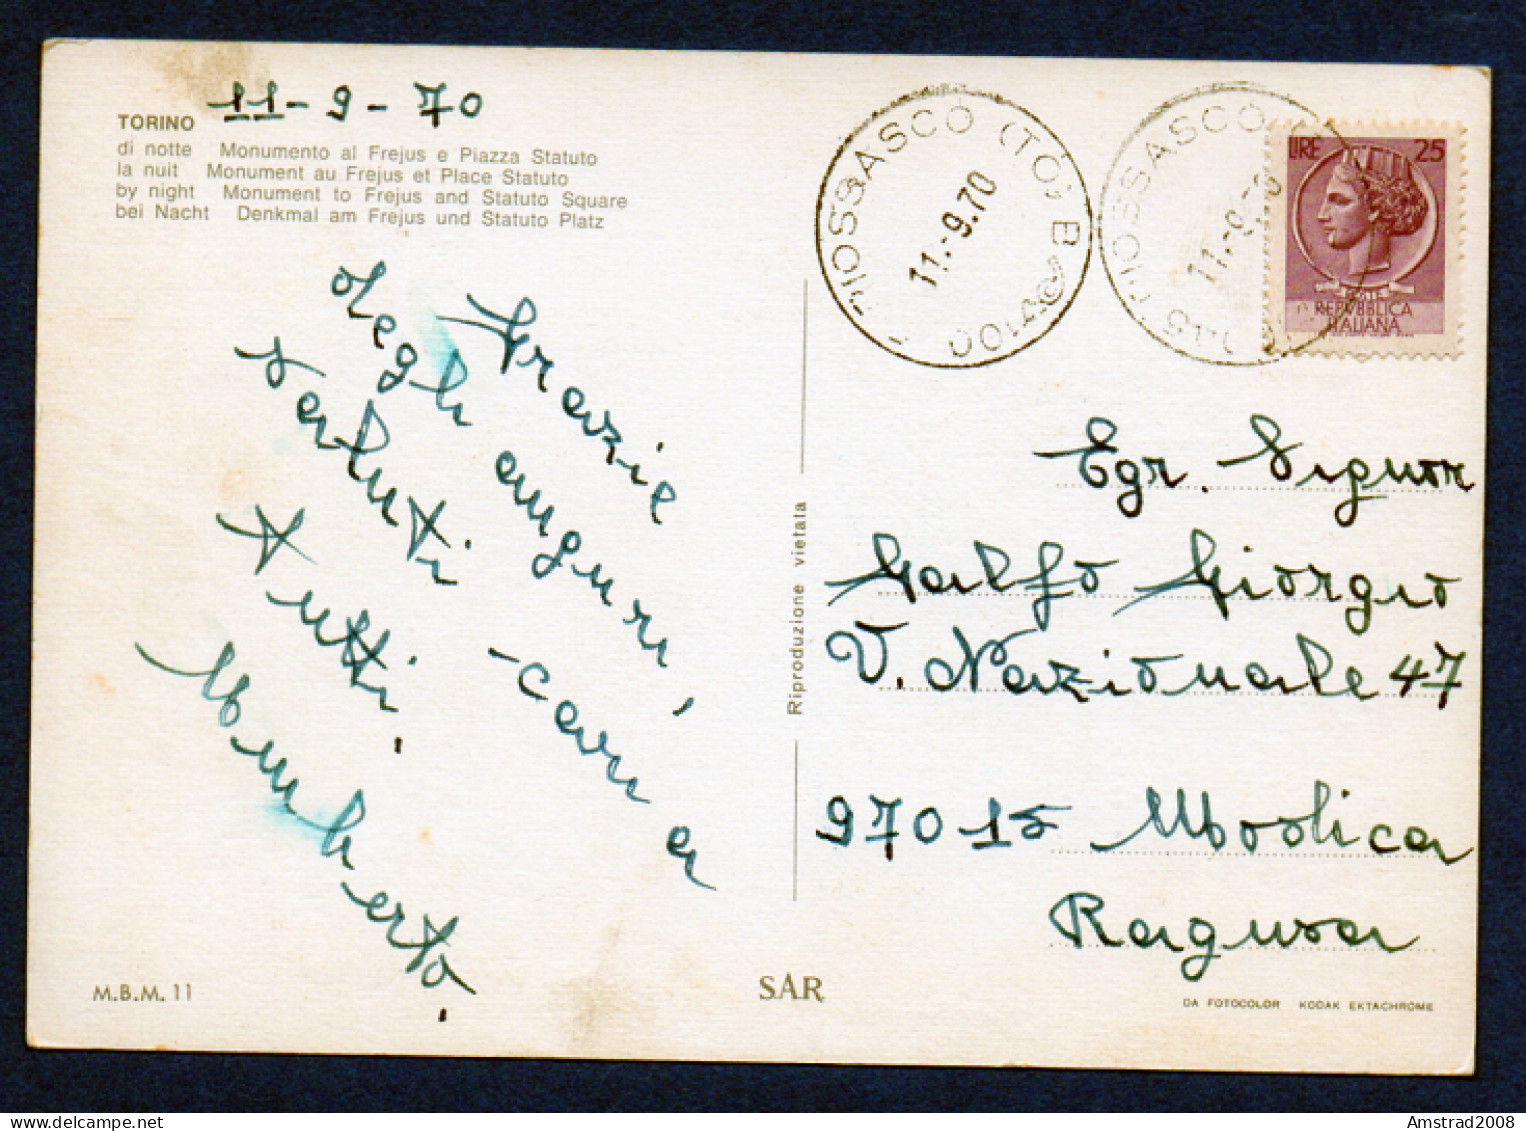 11-9-70
TORINO
di notte Monumento al Frejus e Piazza Statuto
la nuit Monument au Frejus et Place Statuto
by night Monument to Frejus and Statuto Square
bei Nacht Denkmal am Frejus und Statuto Platz
Grazie
degli auguri,
saluti cari a
tutti.
Umberto.
M.B.M. 11
Riproduzione vietata
SAR
PIOSSASCO (TO) B
11.-9.70
PIOSSASCO
11.-9.70
LIRE 25
POSTE
REPVBBLICA
ITALIANA
Egr. Signor
Galfo Giorgio
V. Nazionale 47
97015 Modica
Ragusa
DA FOTOCOLOR KODAK EKTACHROME
Amstrad2008